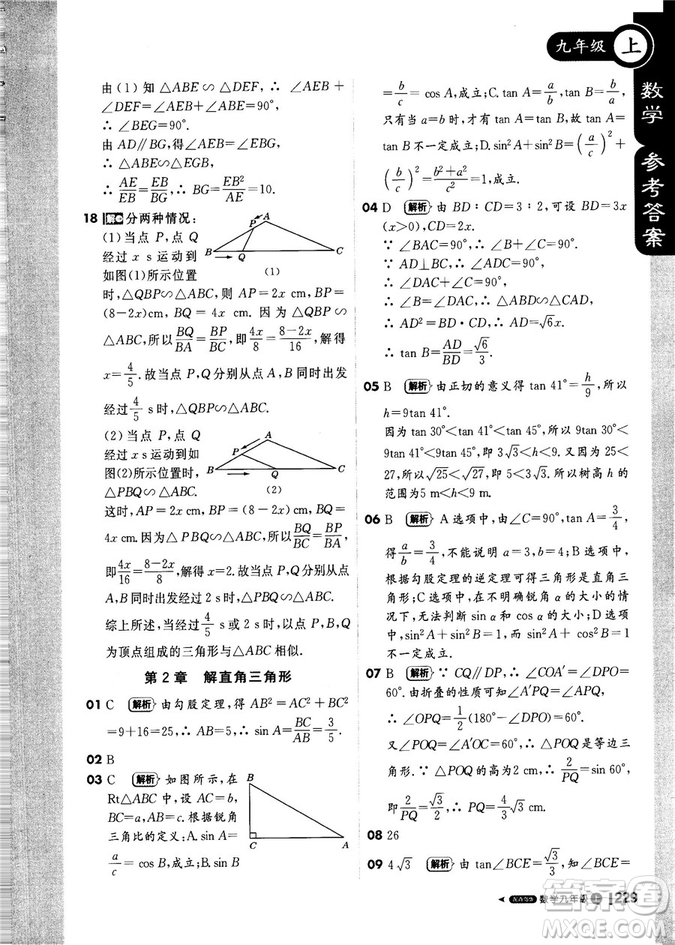 九年级 上
数学 参考答案
由(1)知 △ABE∽△DEF,∴ ∠ABE+
∠DEF=∠ABE+∠AEB=90°,
∴ ∠BEG=90°.
由 AD∥BG,得∠AEB=∠EBG,
∴ △ABE∽△EGB,
∴ AE/EB=EB/BG,∴ BG=EB²/AE=10.
18 分两种情况:
(1)当点 P,点 Q
经过 x s 运动到
如图(1)所示位置
时,△QBP∽△ABC,则 AP=2x cm,BP=
(8-2x)cm,BQ=4x cm.因为△QBP∽
△ABC,所以BQ/BA=BP/BC,即4x/8=(8-2x)/16,解得
x=4/5.故当点 P,Q 分别从点 A,B 同时出发
经过4/5 s 时,△QBP∽△ABC.
(2)当点 P,点 Q
经过 x s 运动到如
图(2)所示位置时,
△PBQ∽△ABC,
则 AP=2x cm,BP=(8-2x)cm,BQ=
4x cm.因为△PBQ∽△ABC,所以BQ/BC=BP/BA,
即4x/16=(8-2x)/8,解得 x=2.故当点 P,Q 分别
从点 A,B 同时出发经过 2 s 时,△PBQ∽
△ABC.
综上所述,经过4/5 s 或 2 s 时,以点 P,B,Q
为顶点组成的三角形与△ABC 相似.
A
P
B
Q
C
(1)
A
P
B
Q
C
(2)
第 2 章 解直角三角形
01 C 解析 由勾股定理,得 AB²=AC²+BC²
=9+16=25,∴ AB=5,∴ sin A=BC/AB=3/5.
02 B
03 C 解析 如图所示,在
Rt△ABC 中,根据锐角
三角比的定义:A.sin A=
a/c=cos B,成立;B.sin B
B
C
A
=b/c=cos A,成立;C.tan A=a/b,tan B=b/a,
只有当 a=b 时,tan A=tan B,故 tan A=
tan B 不一定成立;D.sin²A+sin²B=(a/c)²+
(b/c)²=(b²+a²)/c²=1,成立.
04 D 解析 由 BD∶CD=3∶2,可设 BD=3x
(x>0),CD=2x.
∵ ∠BAC=90°,∴ ∠B+∠C=90°.
∵ AD⊥BC,∴ ∠DAC+∠C=90°,
∴ ∠B=∠DAC,∴ △ABD∽△CAD,
∴ AD²=BD·CD,∴ AD=√6x.
∴ tan B=AD/BD=√6/3.
05 B 解析 由正切的意义得 tan 41°=h/9,所以
h=9tan 41°.
因为 tan 30°<tan 41°<tan 45°,所以 9tan 30°<
9tan 41°<9tan 45°,即 3√3<h<9.又因为 25<
27,所以√25<√27,即 5<3√3.所以树高 h 的
范围为 5 m<h<9 m.
06 B 解析 A 选项中,由∠C=90°,tan A=3/4,
得a/b=3/4,不能说明 a=3,b=4;B 选项中,
根据勾股定理的逆定理可得三角形是直角三
角形;C 选项中,在不明确锐角 α 的大小的情
况下,无法判断 sin α 和 cos α 的大小;D 选项
中,sin²α+sin²β=1 不一定成立.
07 B 解析 ∵ CQ∥DP,∴ ∠COA′=∠DPA′=
60°.由折叠的性质,可知∠A′PQ=∠APQ,
∴ ∠OPQ=1/2(180°-∠DPO)=60°.
又∠POQ=∠COA′=60°,∴ △POQ 是等边三
角形.∵ ∠POQ 的高为 2 cm,∴ 2/PQ=sin 60°,
即2/PQ=√3/2,∴ PQ=4√3/3 cm.
08 26
09 4√3 解析 由 tan∠BCE=√3/3,知∠BCE=
数学九年级 上 229
答案圈